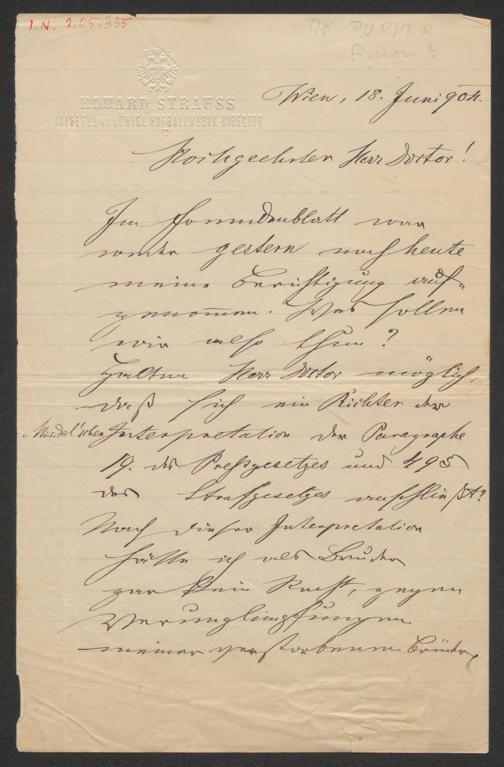 I.N. 205.355
Dr. POPPER
Simon?
EDUARD STRAUSS
KAISERL. UND KÖNIGL. HOFBALLMUSIK-DIRECTOR
Wien, 18. Juni 904.
Hochgeehrter Herr Doctor!
Im Fremdenblatt war
weder gestern noch heute
meine Berichtigung auf-
genommen. Was sollen
wir also thun?
Halten Herr Doctor möglich,
daß sich ein Richter der
Interpretation der Paragraphe
19. des Preßgesetzes und 495
des Strafgesetzes anschließt?
Nach dieser Interpretation
hätte ich als Bruder
gar kein Recht, gegen
Verunglimpfungen
meiner verstorbenen Brüder